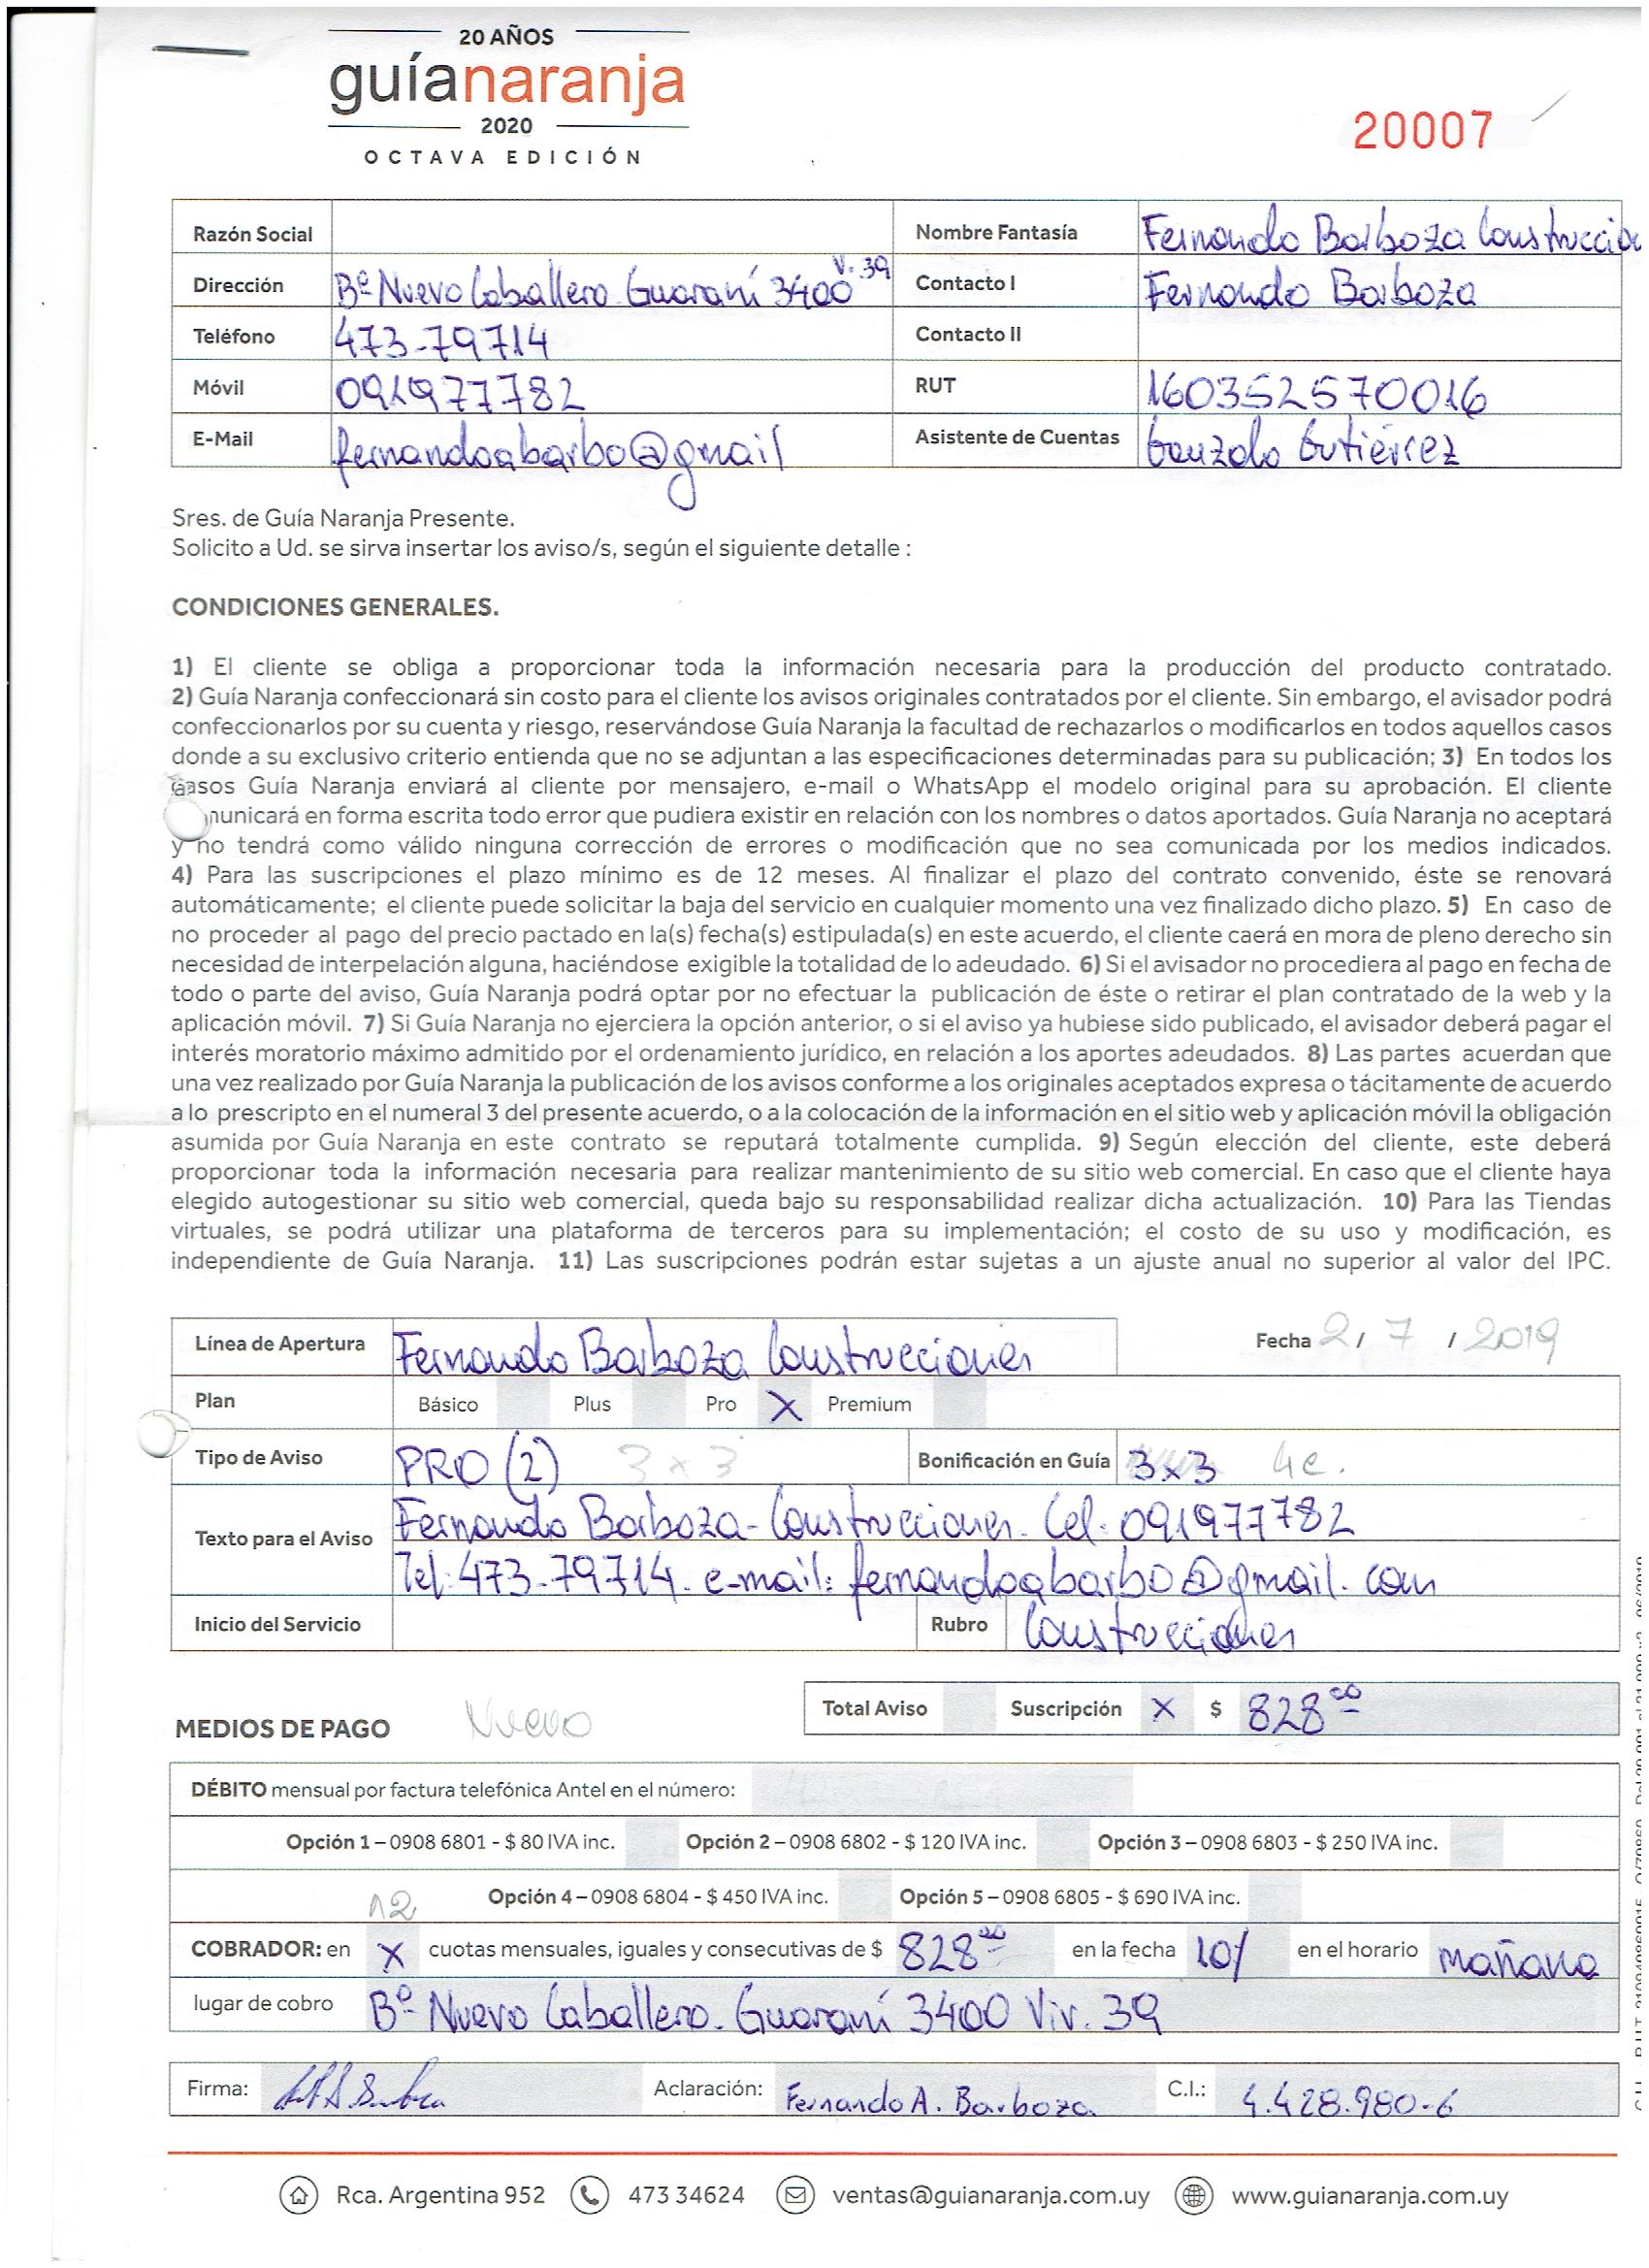 20 AÑOS
guíanaranja
2020
OCTAVA EDICIÓN
20007
Razón Social
Nombre Fantasía Fernando Barboza Construccion
Dirección Bº Nuevo Caballero Guaraní 3400 V. 39
Contacto I Fernando Barboza
Teléfono 473-79714
Contacto II
Móvil 091977782
RUT 160352570016
E-Mail fernandoabarbo@gmail
Asistente de Cuentas Gonzalo Gutiérrez
Sres. de Guía Naranja Presente.
Solicito a Ud. se sirva insertar los aviso/s, según el siguiente detalle :
CONDICIONES GENERALES.
1) El cliente se obliga a proporcionar toda la información necesaria para la producción del producto contratado.
2) Guía Naranja confeccionará sin costo para el cliente los avisos originales contratados por el cliente. Sin embargo, el avisador podrá
confeccionarlos por su cuenta y riesgo, reservándose Guía Naranja la facultad de rechazarlos o modificarlos en todos aquellos casos
donde a su exclusivo criterio entienda que no se adjuntan a las especificaciones determinadas para su publicación; 3) En todos los
casos Guía Naranja enviará al cliente por mensajero, e-mail o WhatsApp el modelo original para su aprobación. El cliente
municará en forma escrita todo error que pudiera existir en relación con los nombres o datos aportados. Guía Naranja no aceptará
y no tendrá como válido ninguna corrección de errores o modificación que no sea comunicada por los medios indicados.
4) Para las suscripciones el plazo mínimo es de 12 meses. Al finalizar el plazo del contrato convenido, éste se renovará
automáticamente; el cliente puede solicitar la baja del servicio en cualquier momento una vez finalizado dicho plazo. 5) En caso de
no proceder al pago del precio pactado en la(s) fecha(s) estipulada(s) en este acuerdo, el cliente caerá en mora de pleno derecho sin
necesidad de interpelación alguna, haciéndose exigible la totalidad de lo adeudado. 6) Si el avisador no procediera al pago en fecha de
todo o parte del aviso, Guía Naranja podrá optar por no efectuar la publicación de éste o retirar el plan contratado de la web y la
aplicación móvil. 7) Si Guía Naranja no ejerciera la opción anterior, o si el aviso ya hubiese sido publicado, el avisador deberá pagar el
interés moratorio máximo admitido por el ordenamiento jurídico, en relación a los aportes adeudados. 8) Las partes acuerdan que
una vez realizado por Guía Naranja la publicación de los avisos conforme a los originales aceptados expresa o tácitamente de acuerdo
a lo prescripto en el numeral 3 del presente acuerdo, o a la colocación de la información en el sitio web y aplicación móvil la obligación
asumida por Guía Naranja en este contrato se reputará totalmente cumplida. 9) Según elección del cliente, este deberá
proporcionar toda la información necesaria para realizar mantenimiento de su sitio web comercial. En caso que el cliente haya
elegido autogestionar su sitio web comercial, queda bajo su responsabilidad realizar dicha actualización. 10) Para las Tiendas
virtuales, se podrá utilizar una plataforma de terceros para su implementación; el costo de su uso y modificación, es
independiente de Guía Naranja. 11) Las suscripciones podrán estar sujetas a un ajuste anual no superior al valor del IPC.
Línea de Apertura Fernando Barboza Construcciones
Fecha 2 / 7 / 2019
Plan Básico Plus Pro X Premium
Tipo de Aviso PRO (2) 3x3
Bonificación en Guía 3x3 4c.
Texto para el Aviso Fernando Barboza - Construcciones. Cel: 091977782
Tel: 473-79714. e-mail: fernandoabarbo@gmail.com
Inicio del Servicio
Rubro Construcciones
MEDIOS DE PAGO Nuevo
Total Aviso Suscripción X $ 828 00
DÉBITO mensual por factura telefónica Antel en el número:
Opción 1 – 0908 6801 - $ 80 IVA inc. Opción 2 – 0908 6802 - $ 120 IVA inc. Opción 3 – 0908 6803 - $ 250 IVA inc.
Opción 4 – 0908 6804 - $ 450 IVA inc. Opción 5 – 0908 6805 - $ 690 IVA inc.
12
COBRADOR: en X cuotas mensuales, iguales y consecutivas de $ 828 00 en la fecha 10/ en el horario mañana
lugar de cobro Bº Nuevo Caballero. Guaraní 3400 Viv. 39
Firma: Aclaración: Fernando A. Barboza C.I.: 4.428.980-6
Rca. Argentina 952 473 34624 ventas@guianaranja.com.uy www.guianaranja.com.uy